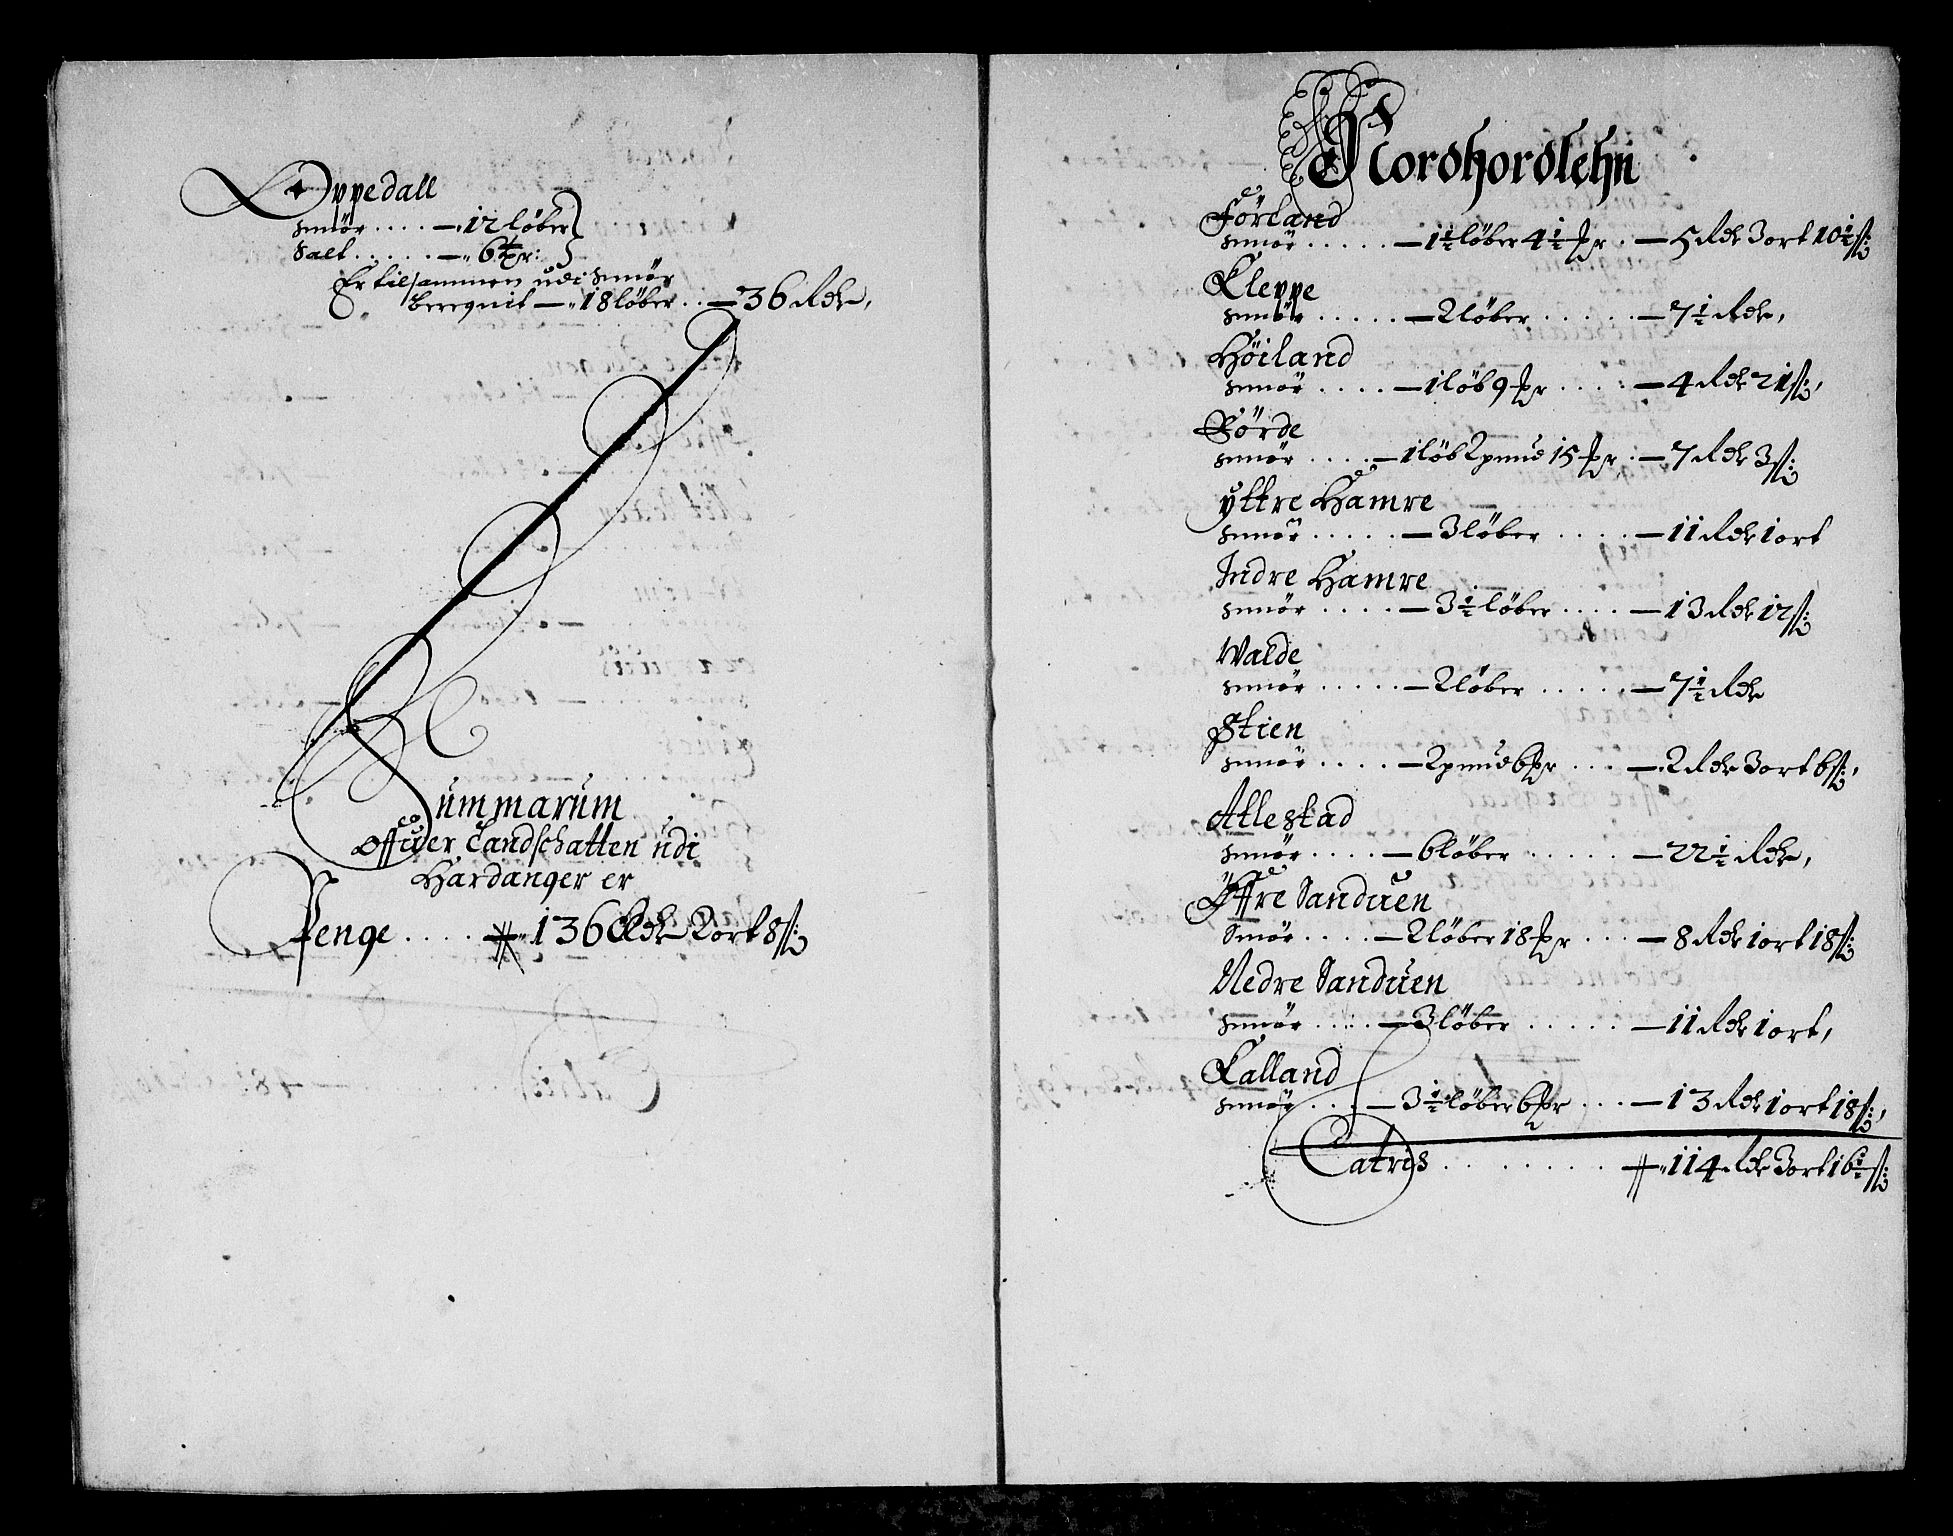 Oppedall
Smör .... — 12 löber
Salt ..... — 6 tr:
Er tilsammen udi Smör
beregnit — 18 löber .. — 36 Rdr,
Summarum
Offuer Landschatten udi
Hardanger er
Penge .... — 136 Rdr 2 ort 8 ſs:
Nordhordlehn
Förland
Smör ..... — 1½ löber 4½ pr . — 5 Rdr 3 ort 10½ ſs:
Kleppe
Smör ..... — 2 löber ..... — 7½ Rdr,
Höiland
Smör .... — 1 löb 9 pr .... — 4 Rdr 21 ſs:,
Förde
Smör .... — 1 löb 2 pund 15 pr . — 7 Rdr 3 ſs:
yttre Hamre
Smör ..... — 3 löber .... — 11 Rdr 1 ort
Indre Hamre
Smör .... — 3½ löber .... — 13 Rdr 12 ſs:
Walde
Smör ..... — 2 löber ..... — 7½ Rdr
Stien
Smör .... — 2 pund 6 pr ... — 2 Rdr 3 ort 6 ſs:,
Atlestad
Smör .... — 6 löber ..... — 22½ Rdr,
Öffre Sanduen
Smör .... — 2 löber 18 pr ... — 8 Rdr 1 ort 18 ſs:
Nedre Sanduen
Smör .... — 3 löber ..... — 11 Rdr 1 ort,
Kalland
Smör ... — 3½ löber 6 pr ... — 13 Rdr 1 ort 18 ſs:,
Latris ....... — 114 Rdr 3 ort 16½ ſs: